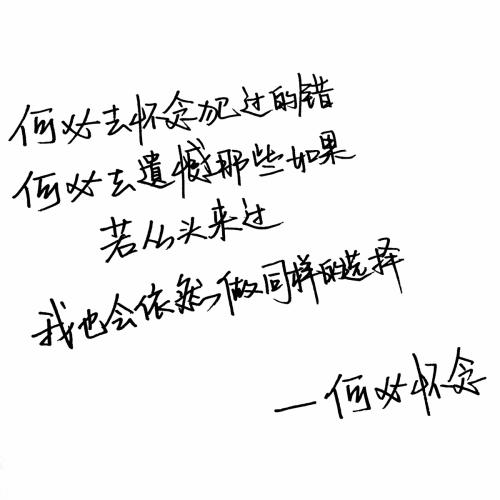 何必去怀念犯过的错
何必去遺憾那些如果
若从头来过
我也会依然做同样的选择
—何必怀念